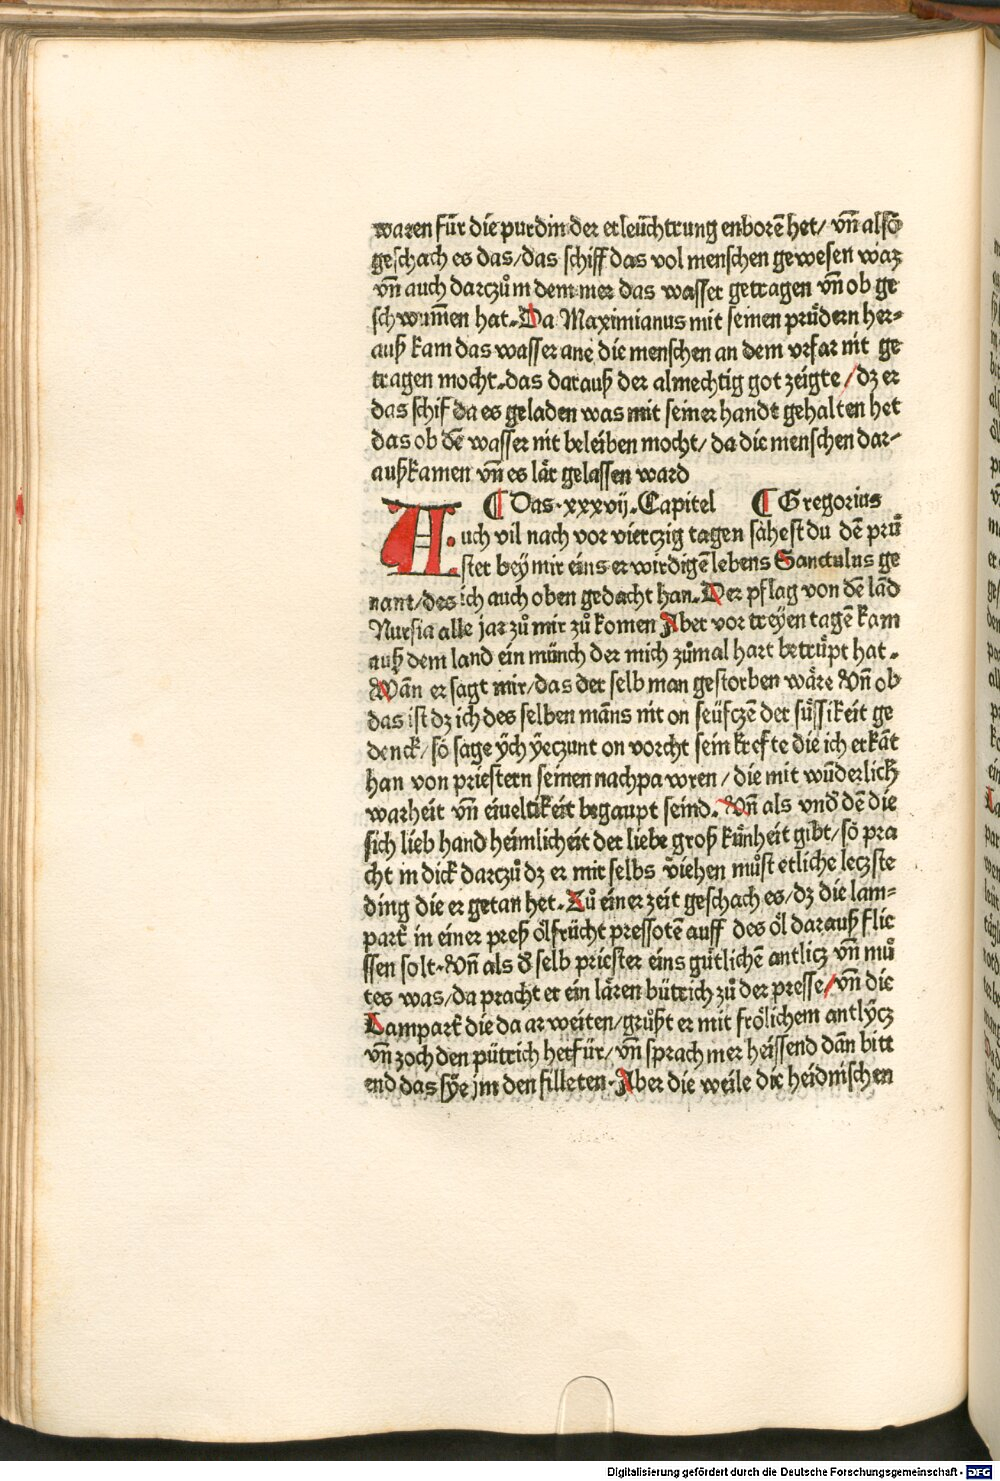 waren für die purdin der erleüchtrung enborē het/ vn̄ alsō
geschach es das/das schiff das vol menschen gewesen waz
vn̄ auch darczům dem mer das wasser getragen vn̄ ob ge
schwum̄en hat. Da Maximianus mit seinen prüdern her-
auß kam das wasser ane die menschen an dem vrfar nit ge
tragen mocht. das darauß der almechtig got zeigte/dz er
das schif da es geladen was mit seiner handt gehalten het
das ob dē wasser nit beleiben mocht/ da die menschen dar-
außkamen vn̄ es lär gelassen ward
¶ Das .xxxvij. Capitel ¶ Gregorius
Auch vil nach vor vierczig tagen sähest du dē prů
ster bey mir eins erwirdigē lebens Sanctulus ge
nant/des ich auch oben gedacht han. Der pflag von dē lād
Nursia alle jar zů mir zů komen Aber vor treyen tagē kam
auß dem land ein münch der mich zůmal hart betrüpt hat.
Wān er sagt mir/das der selb man gestorben wäre Vn̄ ob
das ist dz ich des selben māns nit on seüfczē der süssikeit ge
denck/ so sage ÿch ÿeczunt on vorcht sein krefte die ich erkāt
han von priestern seinen nachpawren/ die mit wūderlich
warheit vn̄ einueltikeit begaupt seind. Vn̄ als vnd̕ dē die
sich lieb hand heimlicheit der liebe groß künheit gibt/ so pra
cht in dick darczů dz er mir selbs v̄iehen můst etliche leczste
ding die er getan het. Zů einer zeit geschach es/dz die lam-
part̄ in einer preß ölfrücht pressotē auff des öl darauß flie
ssen solt. Vn̄ als d̕ selb priester eins gütlichē antlicz vn̄ mů
tes was/da pracht er ein lären büttich zů der presse/vn̄ die
Lampart̄ die da arweiten/grůßt er mit frölichem antlÿcz
vn̄ zoch den püttich herfür/vn̄ sprach mer heissend dān bitt
end das sÿe jm den filleten. Aber die weile die heidnischen